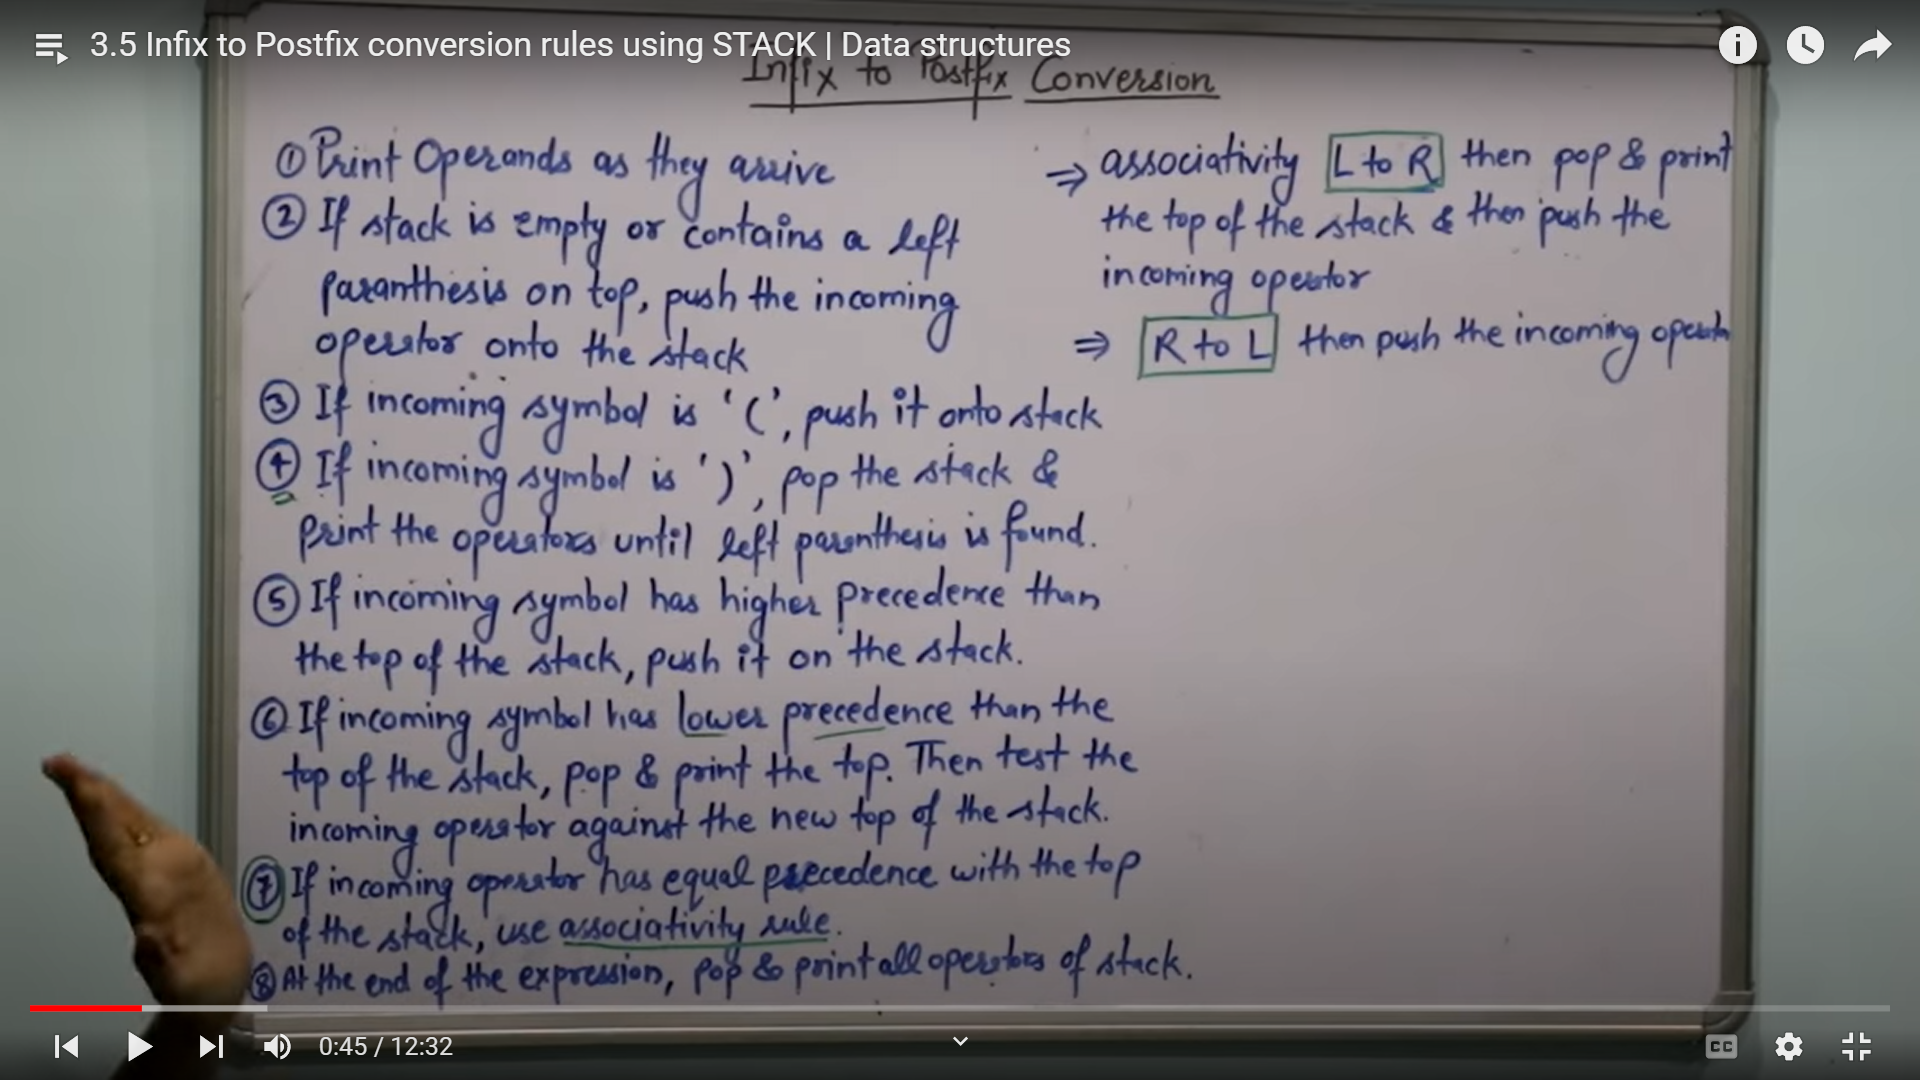 3.5 Infix to Postfix conversion rules using STACK | Data structures
Infix to Postfix Conversion
① Print Operands as they arrive
② If stack is empty or contains a left
paranthesis on top, push the incoming
operator onto the stack
③ If incoming symbol is '(', push it onto stack
④ If incoming symbol is ')', pop the stack &
print the operators until left paranthesis is found.
⑤ If incoming symbol has higher precedence than
the top of the stack, push it on the stack.
⑥ If incoming symbol has lower precedence than the
top of the stack, pop & print the top. Then test the
incoming operator against the new top of the stack.
⑦ If incoming operator has equal precedence with the top
of the stack, use associativity rule.
⑧ At the end of the expression, pop & print all operators of stack.
⇒ associativity L to R then pop & print
the top of the stack & then push the
incoming operator
⇒ R to L then push the incoming operator
0:45 / 12:32
CC